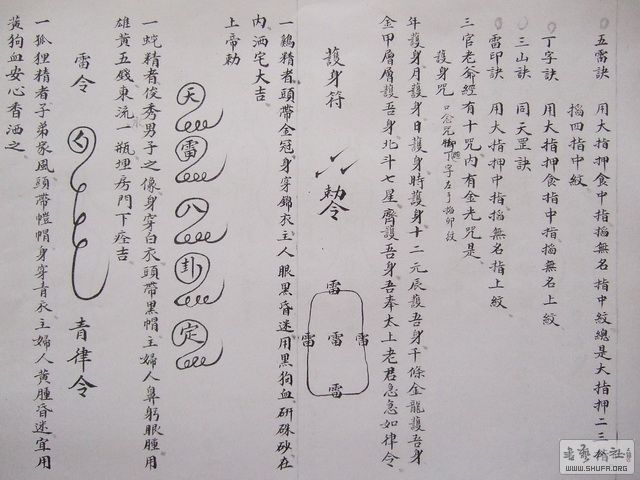 五雷訣　用大指押食中指掐無名指中紋總是大指押二三
掐四指中紋
丁字訣　用大指押食指中指掐無名上紋
三山訣　同天罡訣
雷印訣　用大指押中指掐無名指上紋
三官老爺經有十咒內有金光咒是
護身咒
年護身月護身日護身時護身十二元辰護吾身千條金龍護吾身
金甲層層護吾身北斗七星齊護吾身吾奉太上老君急急如律令
護身符
敕令
雷
雷 雷 雷
雷
一鷄精者頭帶金冠身穿錦衣主人眼黑昏迷用黑狗血研硃砂在
內洒宅大吉
上帝勅
天雷八卦定
一蛇精者俊秀男子之像身穿白衣頭帶黑帽主婦人鼻䠶眼腫用
雄黃五錢東流一瓶埋房門下痊吉
雷令
青律令
一狐狸精者子弟家風頭帶氊帽身穿青衣主婦人黃腫昏迷宜用
黃狗血安心香洒之
WWW.SHUFA.ORG